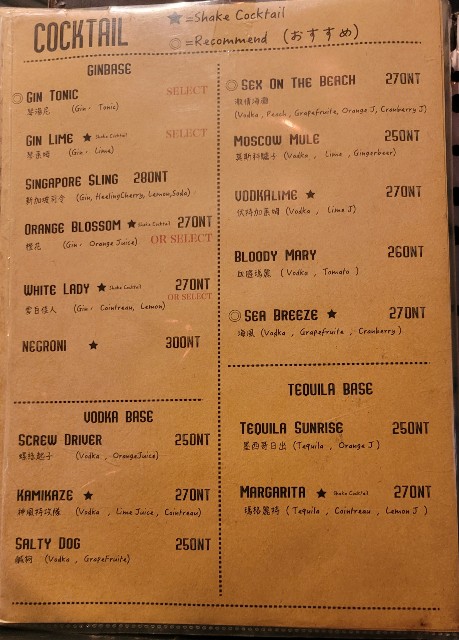 COCKTAIL
★=Shake Cocktail
◎=Recommend (おすすめ)
GINBASE
◎ GIN TONIC SELECT
琴湯尼 (Gin . Tonic)
GIN LIME ★ Shake Cocktail SELECT
琴萊姆 (Gin . Lime)
SINGAPORE SLING 280NT
新加坡司令 (Gin, HeelingCherry, Lemon, Soda)
ORANGE BLOSSOM ★ Shake Cocktail 270NT
橙花 (Gin . Orange Juice) OR SELECT
WHITE LADY ★ Shake Cocktail 270NT
OR SELECT
雪白佳人 (Gin . Cointreau, Lemon)
NEGRONI ★ 300NT
VODKA BASE
SCREW DRIVER 250NT
螺絲起子 (Vodka , OrangeJuice)
KAMIKAZE ★ 270NT
神風特攻隊 (Vodka , Lime Juice , Cointreau)
SALTY DOG 250NT
鹹狗 (Vodka , Grapefruite)
◎ SEX ON THE BEACH 270NT
激情海灘
(Vodka , Peach , Grapefruite, Orange J, Cranberry J)
MOSCOW MULE 250NT
莫斯科騾子 (Vodka , Lime , Gingerbeer)
VODKALIME ★ 270NT
伏特加萊姆 (Vodka , Lime J)
BLOODY MARY 260NT
血腥瑪麗 (Vodka , Tomato )
◎ SEA BREEZE ★ 270NT
海風 (Vodka , Grapefruite , Cranberry )
TEQUILA BASE
TEQUILA SUNRISE 250NT
墨西哥日出 (Tequila , Orange J )
MARGARITA ★ Shake Cocktail 270NT
瑪格麗特 ( Tequila , Cointreau , Lemon J )